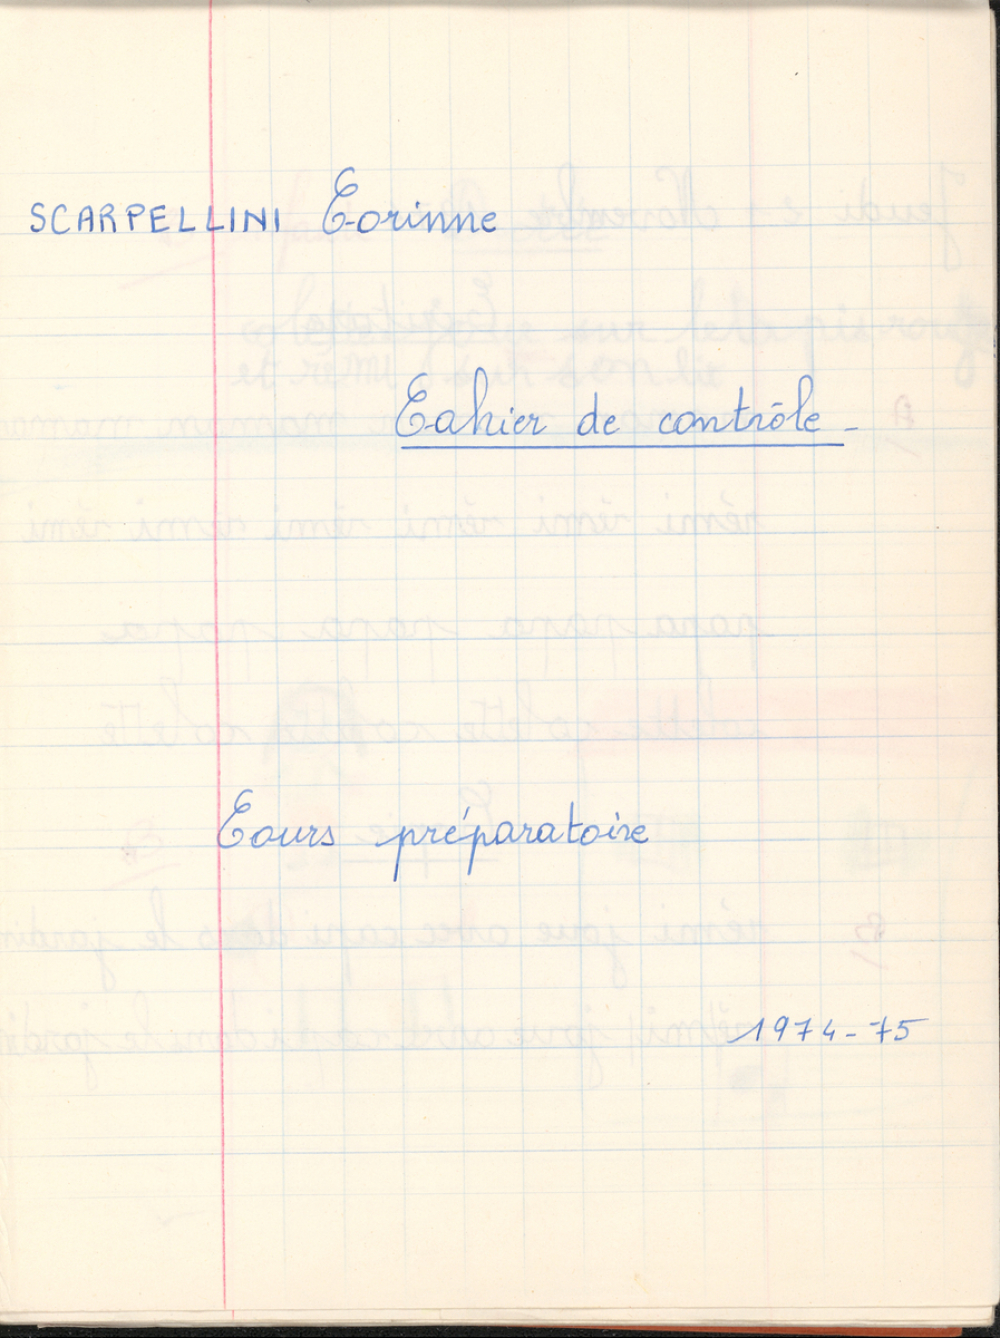 SCARPELLINI Corinne
Cahier de contrôle -
Cours préparatoire
1974-75